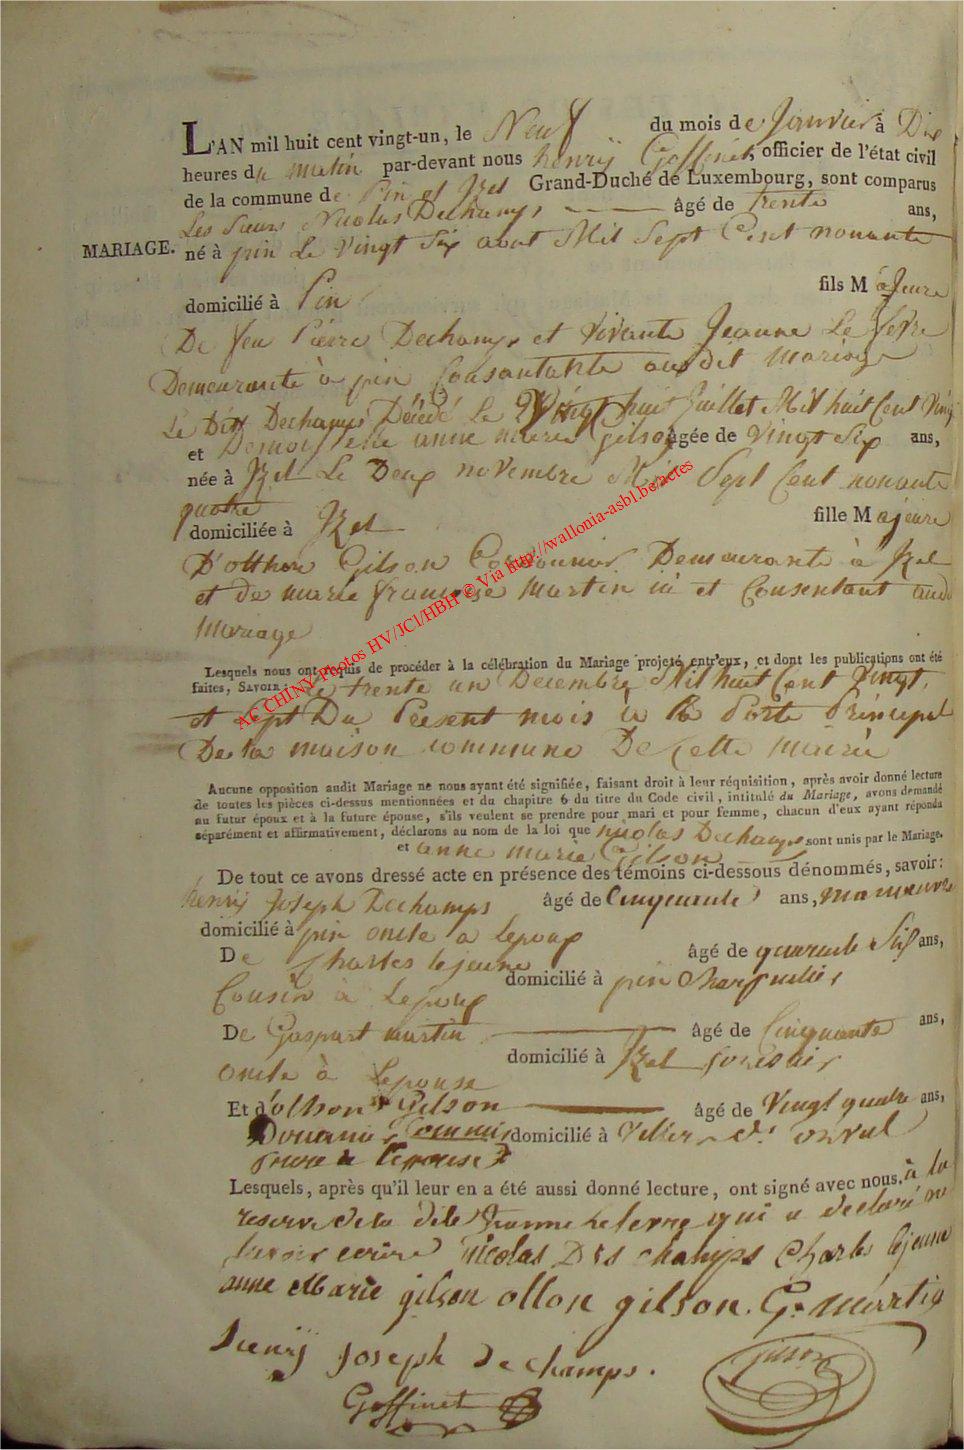 L'AN mil huit cent vingt-un, le Neuf du mois de Janvier à Dix
heures du matin par-devant nous henrij Goffinet, officier de l'état civil
de la commune de Pin et Izel Grand-Duché de Luxembourg, sont comparus
Les Sieur Nicolas Dechamps, âgé de trente ans,
MARIAGE. né à pin Le Vingt Six aout Mil Sept Cent nonante
domicilié à Pin fils Majeure
De feu Pierre Dechamps et vivante Jeanne Le fevre
Demeurante à pin Consantante audit mariage
Le Dit Dechamps Décédé Le Vingt huit Juillet Mil huit Cent Vingt
et Demoiselle anne marie Gilson âgée de Vingt Six ans,
née à Izel Le Deux novembre Mil Sept Cent nonante
quatre
domiciliée à Izel fille Majeure
D'otthon Gilson Cordonnier Demeurante à Izel
et de marie françoise Martin ici et Consentant audit
Mariage
Lesquels nous ont requis de procéder à la célébration du Mariage projeté entr'eux, et dont les publications ont été
faites, SAVOIR: Le trente un Decembre Mil huit Cent Vingt,
et Sept Du Présent mois à la Porte Principal
De la maison commune De Cette mairie
Aucune opposition audit Mariage ne nous ayant été signifiée, faisant droit à leur réquisition, après avoir donné lecture
de toutes les pièces ci-dessus mentionnées et du chapitre 6 du titre du Code civil, intitulé du Mariage, avons demandé
au futur époux et à la future épouse, s'ils veulent se prendre pour mari et pour femme, chacun d'eux ayant répondu
séparément et affirmativement, déclarons au nom de la loi que nicolas Dechamps sont unis par le Mariage.
et anne marie Gilson
De tout ce avons dressé acte en présence des témoins ci-dessous dénommés, savoir:
henrij Joseph Dechamps âgé de Cinquante ans, manoeuvre
domicilié à pin oncle a lepoux
De Charles lejeune âgé de quarante Six ans,
domicilié à pin
Cousin à Lepoux
De Gaspart martin âgé de Cinquante ans,
domicilié à Izel
oncle à Lepouse
Et d'otthon Gilson âgé de Vingt quatre ans,
Douanier domicilié à Villers d' orval
frere a lepouse
Lesquels, après qu'il leur en a été aussi donné lecture, ont signé avec nous. à la
reserve de la dite Jeanne Lefevre qui a declaré ne
savoir ecrire nicolas Des champs Charles lejeune
anne Marie gilson otton gilson. G. martin
henrij Joseph Dechamps. gilson
Goffinet
AC CHINY Photos HV/JCl/HBH © Via http://wallonia-asbl.be/actes